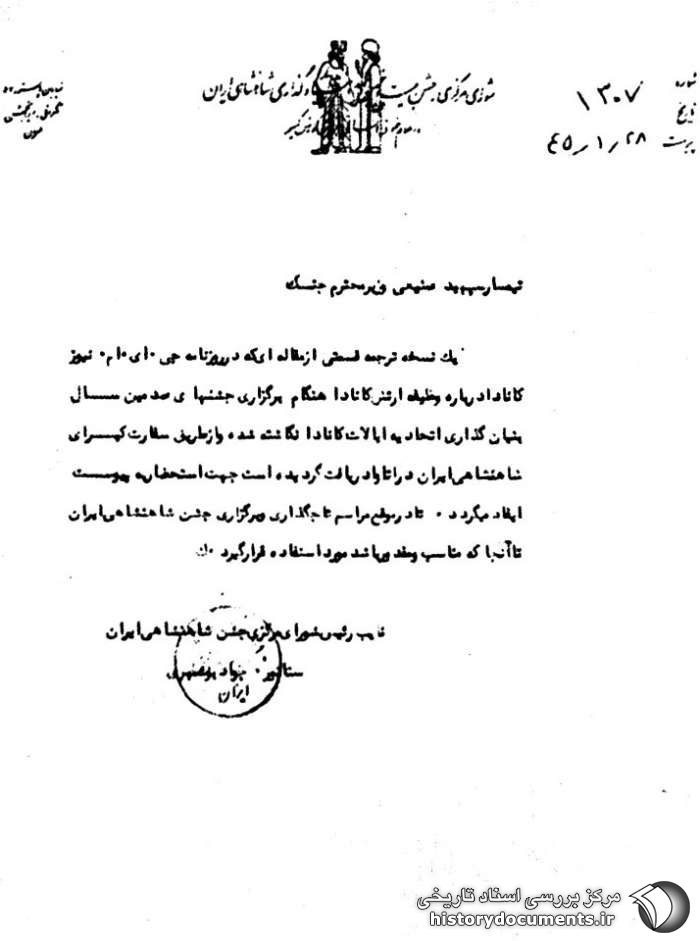 شماره ۱۳۰۷
تاریخ ۴۵/۱/۲۸
پیوست
شورای مرکزی جشن بنیانگذاری شاهنشاهی ایران
تیمسار سپهبد صنیعی وزیر محترم جنگ
یک نسخه ترجمه قسمتی از مقاله ای که در روزنامه جی ۰ ای ۰ ام ۰ نیوز
کانادا درباره وظیفه ارتش کانادا هنگام برگزاری جشنهای صدمین ســـال
بنیان گذاری اتحادیه ایالات کانادا نگاشته شده و از طریق سفارت کبــرای
شاهنشاهی ایران در اتاوا دریافت گردیده است جهت استحضار به پیوســت
ایفاد میگردد ۰ تا در موقع مراسم تاجگذاری و برگزاری جشن شاهنشاهی ایران
تا آنجا که مناسب و مقدور باشد مورد استفاده قرار گیرد ۰
نایب رئیس شورای مرکزی جشن شاهنشاهی ایران
سناتور ۰ جواد بوشهری
ایران
مرکز بررسی اسناد تاریخی
historydocuments.ir